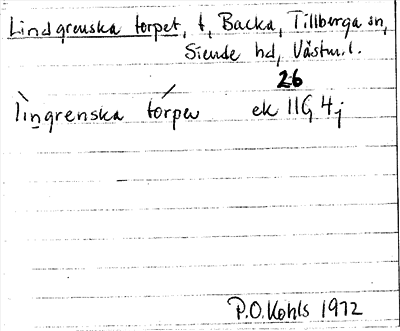 Lindgrenska torpet, t, Backa, Tillberga sn,
Siende hd, Västm. l.
26
lìngrenska tórpen ek 11G 4j
P.O. Kohls 1972